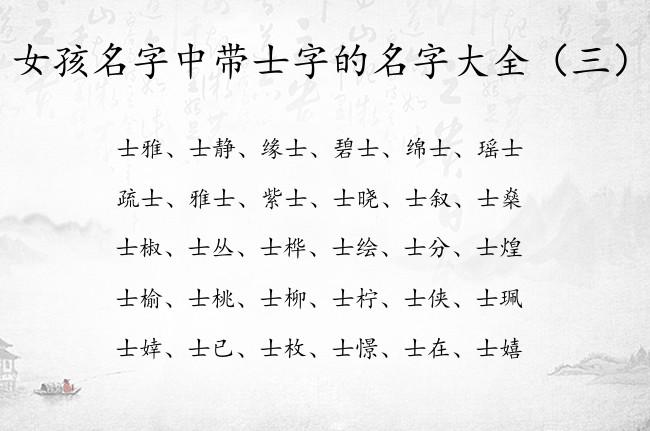 女孩名字中带士字的名字大全（三）
士雅、士静、缘士、碧士、绵士、瑶士
疏士、雅士、紫士、士晓、士叙、士燊
士椒、士丛、士桦、士绘、士分、士煌
士榆、士桃、士柳、士柠、士侠、士珮
士婞、士已、士枚、士憬、士在、士嬉